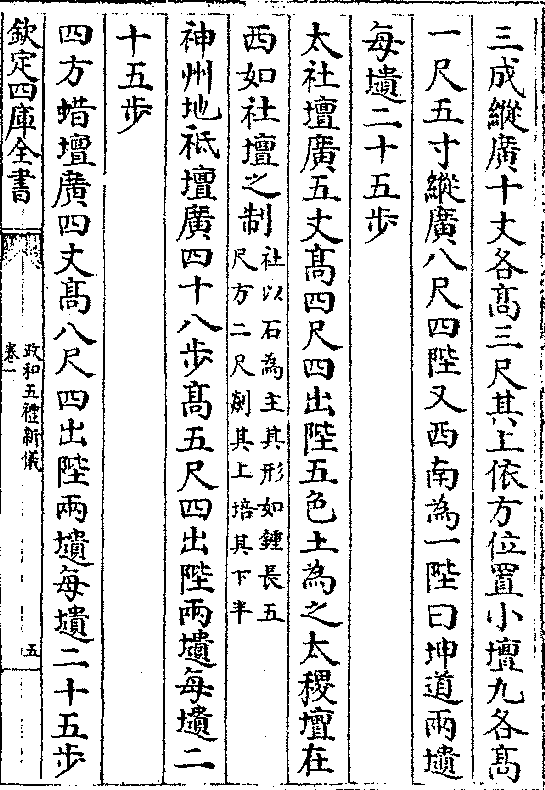 三成縱廣十丈各髙三尺其上依方位置小壇九各髙
一尺五寸縱廣八尺四陛又西南為一陛曰坤道兩壝
每壝二十五步
太社壇廣五丈髙四尺四出陛五色土為之太稷壇在
西如社壇之制社以石為主其形如鍾長五
尺方二尺剡其上培其下半
神州地祗壇廣四十八步髙五尺四出陛兩壝每壝二
十五步
四方蜡壇廣四丈髙八尺四出陛兩壝每壝二十五步
欽定四庫全書
政和五禮新儀
卷一
五